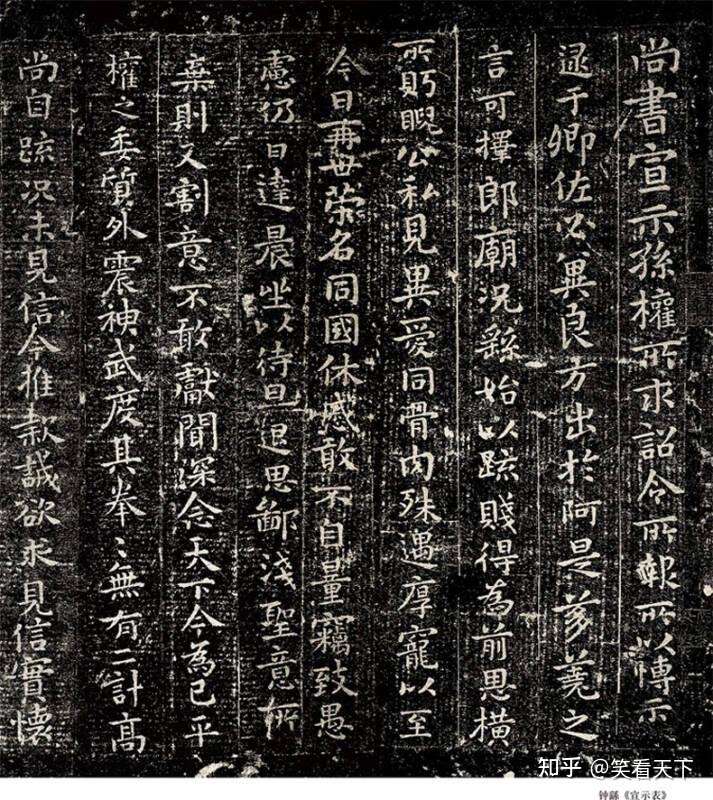 尚書宣示孫權所求詔令所報所以博示
逮于卿佐必異良方出於阿是芻蕘之
言可擇郎廟況繇始以疏賤得為前恩橫
所眄睨公私見異愛同骨肉殊遇厚寵以至
今日再世榮名同國休慼敢不自量竊致愚
慮仍日達晨坐以待旦退思鄙淺聖意所
棄則又割意不敢獻聞深念天下今為已平
權之委質外震神武度其拳〻無有二計高
尚自疏況未見信今推款誠欲求見信實懷
知乎 @笑看天下
钟繇《宣示表》